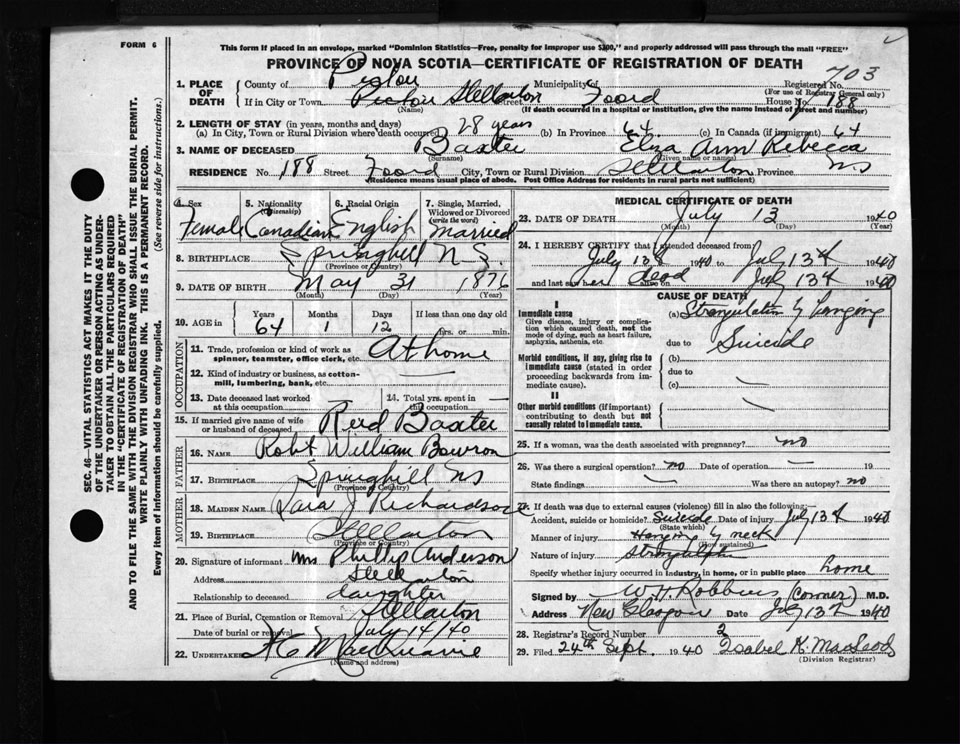 FORM 6
This form if placed in an envelope, marked "Dominion Statistics—Free, penalty for improper use $300," and properly addressed will pass through the mail "FREE"
PROVINCE OF NOVA SCOTIA—CERTIFICATE OF REGISTRATION OF DEATH
703
1. PLACE OF DEATH County of Pictou Municipality of Registered No.
(For use of Registrar General only)
If in City or Town Stellarton Street Foord House No. 188
(Name) (If death occurred in a hospital or institution, give the name instead of street and number)
2. LENGTH OF STAY (in years, months and days)
(a) In City, Town or Rural Division where death occurred 28 years (b) In Province 64. (c) In Canada (if immigrant) 64
3. NAME OF DECEASED Baxter Eliza Ann Rebecca
(Surname) (Given name or names)
RESIDENCE No. 188 Street Foord City, Town or Rural Division Stellarton Province NS
(Residence means usual place of abode. Post Office Address for residents in rural parts not sufficient)
4. Sex Female
5. Nationality (Citizenship) Canadian
6. Racial Origin English
7. Single, Married, Widowed or Divorced (write the word) Married
8. BIRTHPLACE Springhill N.S.
(Province or Country)
9. DATE OF BIRTH May 31 1876
(Month) (Day) (Year)
10. AGE in Years Months Days If less than one day old
64 1 12 hrs. or min.
OCCUPATION
11. Trade, profession or kind of work as spinner, teamster, office clerk, etc. At home
12. Kind of industry or business, as cotton-mill, lumbering, bank, etc. —
13. Date deceased last worked at this occupation — 14. Total yrs. spent in this occupation —
15. If married give name of wife or husband of deceased Reid Baxter
FATHER
16. NAME Robt William Bowron
17. BIRTHPLACE Springhill NS
(Province or Country)
MOTHER
18. MAIDEN NAME Sara J Richardson
19. BIRTHPLACE Stellarton
(Province or Country)
20. Signature of informant Mrs Phillip Anderson
Address Stellarton
Relationship to deceased daughter
21. Place of Burial, Cremation or Removal Stellarton
Date of burial or removal July 14/40
22. UNDERTAKER MacQuarrie
(Name and address)
MEDICAL CERTIFICATE OF DEATH
23. DATE OF DEATH July 13 1940
(Month) (Day) (Year)
24. I HEREBY CERTIFY that I attended deceased from
July 13th 1940 to July 13th 1940
and last saw her alive on dead July 13th 1940
CAUSE OF DEATH
I
Immediate cause
Give disease, injury or complication which caused death, not the mode of dying, such as heart failure, asphyxia, asthenia, etc.
(a) Strangulation by hanging
due to Suicide
Morbid conditions, if any, giving rise to immediate cause (stated in order proceeding backwards from immediate cause).
(b)
due to
(c)
II
Other morbid conditions (if important) contributing to death but not causally related to immediate cause.
25. If a woman, was the death associated with pregnancy? no
26. Was there a surgical operation? no Date of operation — 19
State findings — Was there an autopsy? no
27. If death was due to external causes (violence) fill in also the following:
Accident, suicide or homicide? Suicide Date of injury July 13th 1940
(State which)
Manner of injury Hanging by neck
(How sustained)
Nature of injury Strangulation
Specify whether injury occurred in industry, in home, or in public place home
Signed by W H Robbins (coroner) M.D.
Address New Glasgow Date July 13th 1940
28. Registrar's Record Number
29. Filed 24th Sept. 1940 Isabel K. MacLeod
(Division Registrar)
SEC. 46—VITAL STATISTICS ACT MAKES IT THE DUTY
OF THE UNDERTAKER OR PERSON ACTING AS UNDER-
TAKER TO OBTAIN ALL THE PARTICULARS REQUIRED
IN THE "CERTIFICATE OF REGISTRATION OF DEATH"
AND TO FILE THE SAME WITH THE DIVISION REGISTRAR WHO SHALL ISSUE THE BURIAL PERMIT.
WRITE PLAINLY WITH UNFADING INK. THIS IS A PERMANENT RECORD.
Every item of information should be carefully supplied. (See reverse side for instructions.)